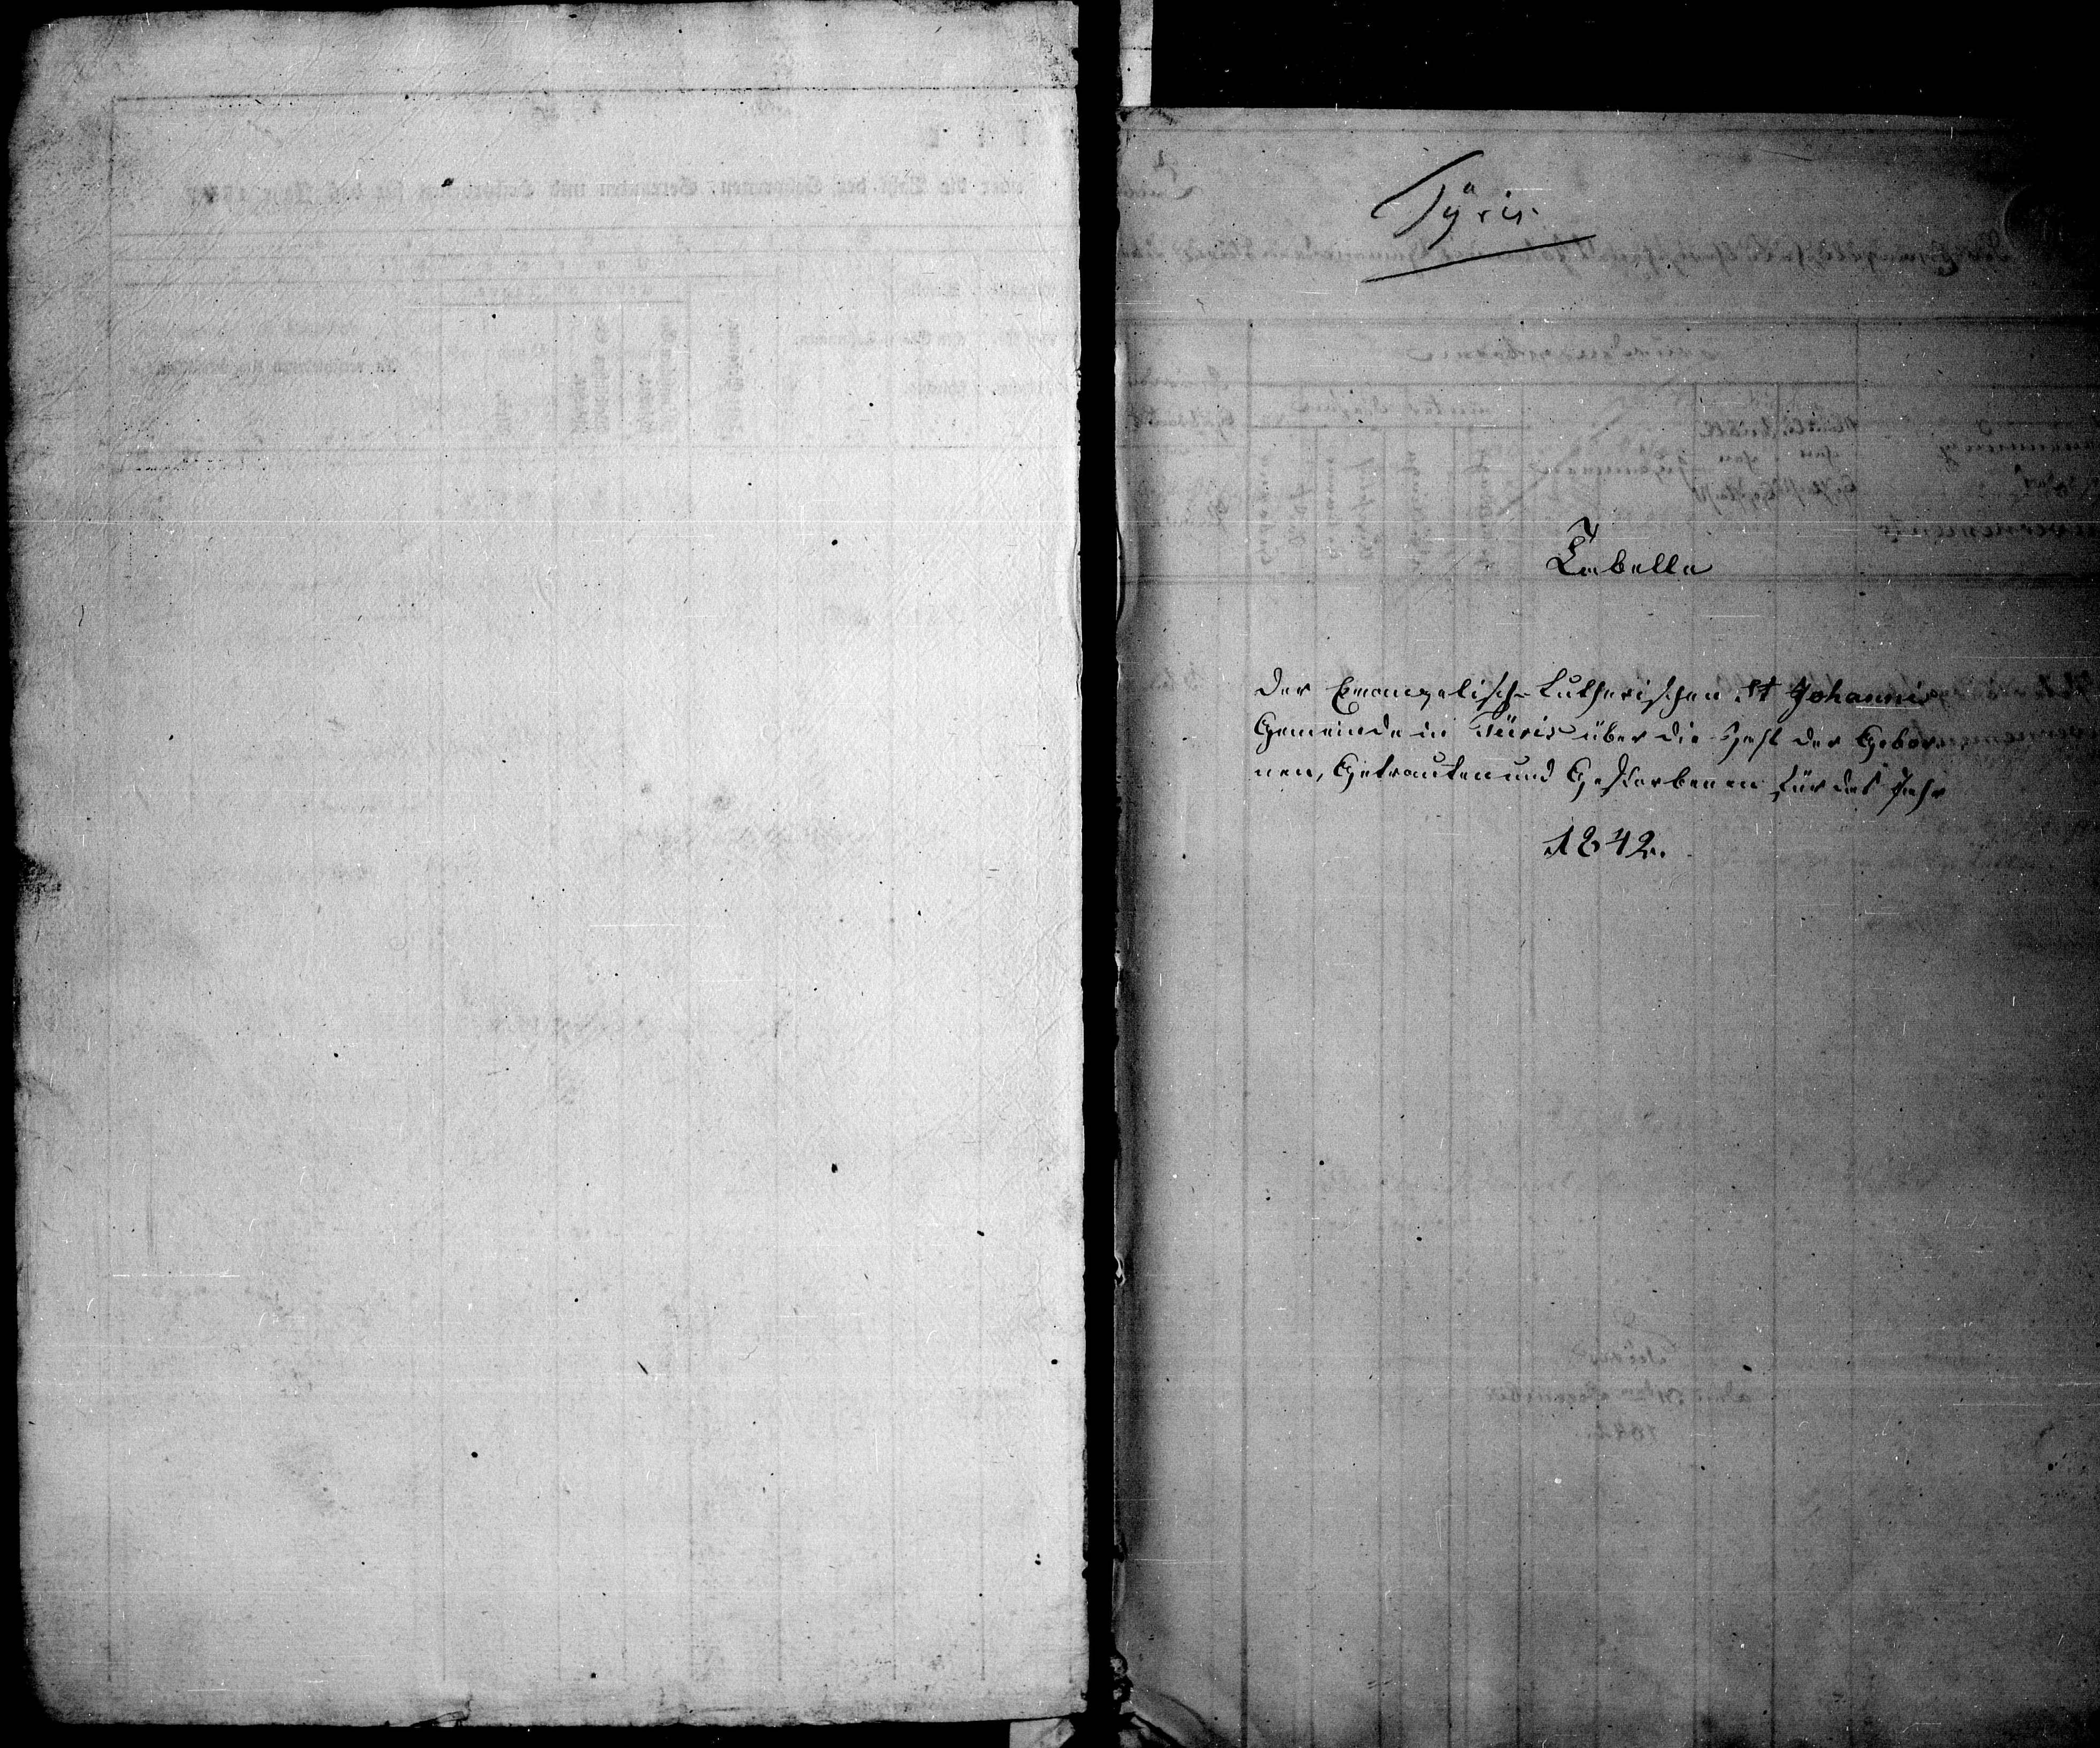 Tyris.
Tabelle
der Evangelisch-Lutherischen St Johannis
Gemeinde in Tüiris über die Zahl der Gebore-
nen, Getrauten und Gestorbenen für das Jahr
1842.